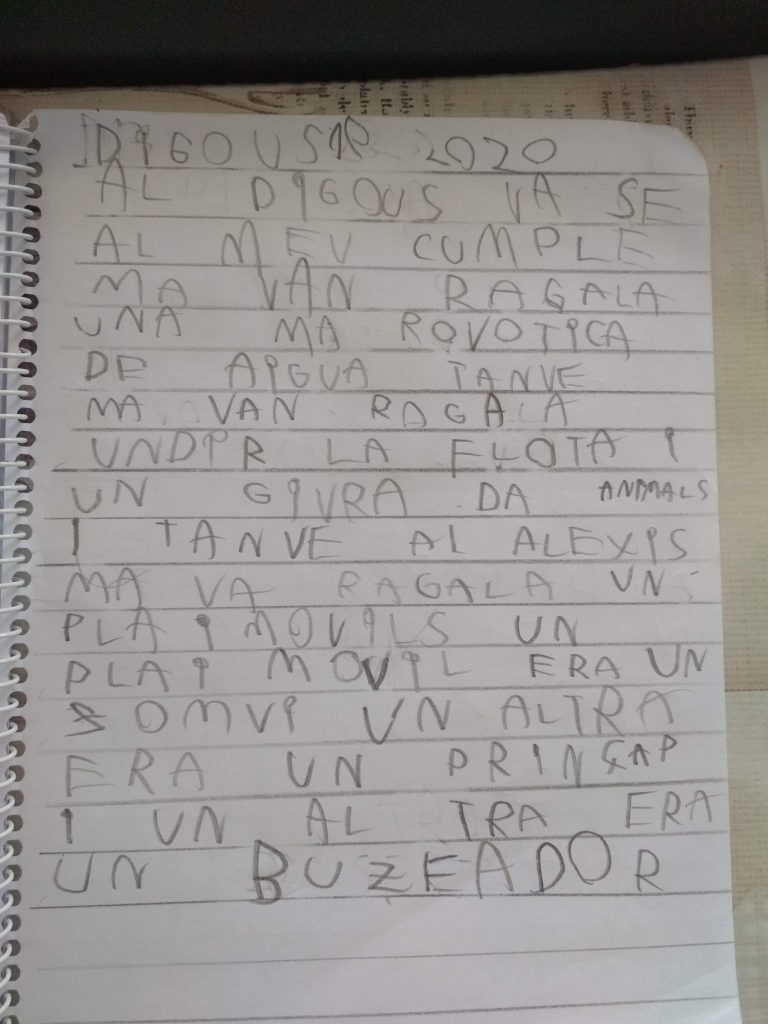 AL DIGOUS VA SE
AL MEU CUMPLE
MA VAN RAGALA
UNA MA ROVOTICA
DE AIGUA TANVE
MA VAN RAGALA
UNDIR LA FLOTA I
UN GIVRA DA ANIMALS
I TANVE AL ALEXIS
MA VA RAGALA UN
PLAIMOVILS UN
PLAI MOVIL ERA UN
SOMVI UN ALTRA
ERA UN PRINÇAP
I UN ALTRA ERA
UN BUZEADOR